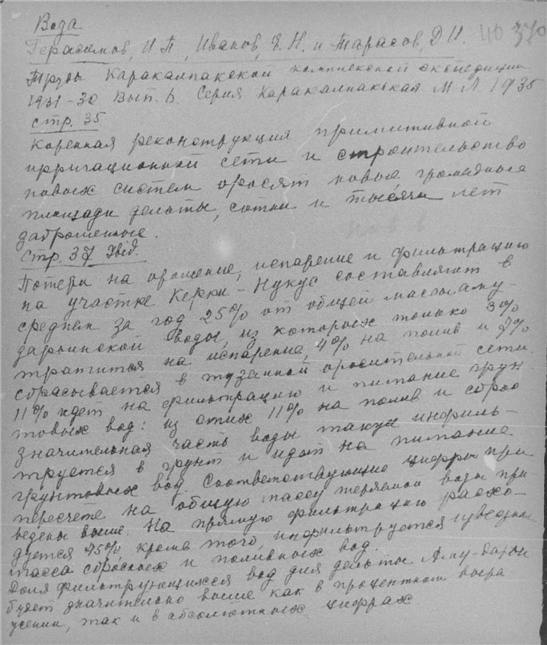 Вода
Герасимов, И.П., Иванов, Е.Н. и Тарасов, Д.И. 40 370
Труды Каракалпакской комплексной экспедиции
1931-30 Вып. 6. Серия Каракалпакская М.Л. 1935
стр. 35
Коренная реконструкция примитивной
ирригационной сети и строительство
новых систем оросят новые громадные
площади дельты, сотни и тысячи лет
заброшенные.
Стр. 37
Потери на орошение, испарение и фильтрацию
на участке Керки-Нукус составляют в
среднем за год 25% от общей массы аму-
дарьинской воды, из которых только 3%
тратится на испарение, 4% на полив и 7%
сбрасывается в оросительной сети.
11% идет на фильтрацию и питание грун
товых вод: из этих 11% на полив и сброс
значительная часть воды также инфиль-
труется в грунт и идет на питание
грунтовых вод. Соответствующие цифры при
пересчете на общую массу теряемой воды при
ведены выше. На прямую фильтрацию расхо-
дуется 45% кроме того, инфильтруется
масса сбросных и поливных вод.
Доля фильтрующихся вод для дельты Аму-дарьи
будет значительно выше как в процентном выра
жении, так и в абсолютных цифрах